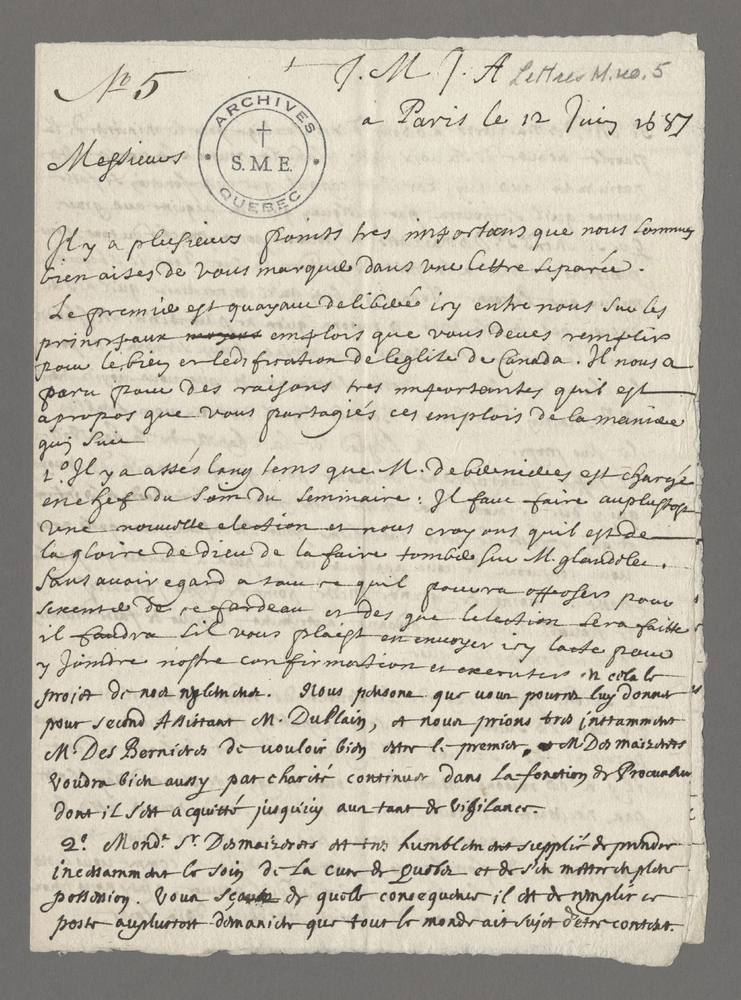 No 5
J. M. J. A Lettres M. no. 5
a Paris le 12 Juin 1687
ARCHIVES
S.M.E.
QUEBEC
Messieurs
Il y a plusieurs points tres importans que nous sommes
bien aises de vous marquer dans une lettre separée.
Le premier est quayant deliberé icy entre nous sur les
principaux emplois que vous deves remplir
pour le bien et ledification de leglise de Canada. Il nous a
paru pour des raisons tres importantes quil est
apropos que vous partagiés ces emplois de la maniere
qui suit
1.º Il y a assés long tems que M. de bernieres est chargé
en chef du soin du seminaire: Il faut faire auplustost
une nouvelle election et nous croyons quil est de
la gloire de dieu de la faire tomber sur M. glandelet.
sans avoir egard a tout ce quil pourra opposer pour
sexenter de ce fardeau et des que lelection sera faitte
il faudra sil vous plaist en envoyer icy lacte pour
y Joindre nostre confirmation et executer en cela le
projet de nos reglemens. Nous pensons que vous pourres luy donner
pour second Assistant M. Du Plain, et nous prions tres instamment
M. Des Bernieres de vouloir bien estre le premier. M. Des maizerets
voudra bien aussy par charité continuer dans La fonction de Procureur
dont il s'est acquitté jusqu'icy avec tant de vigilance.
2.º Mond.t Sr. Desmaizerets est tres humblement supplié de prendre
incessamment le soin de la cure de Quebec et de s'en mettre en pleine
possession. Vous sçavez de quelle consequence il est de remplir ce
poste au plustost de maniere que tout le monde ait sujet d'être content.